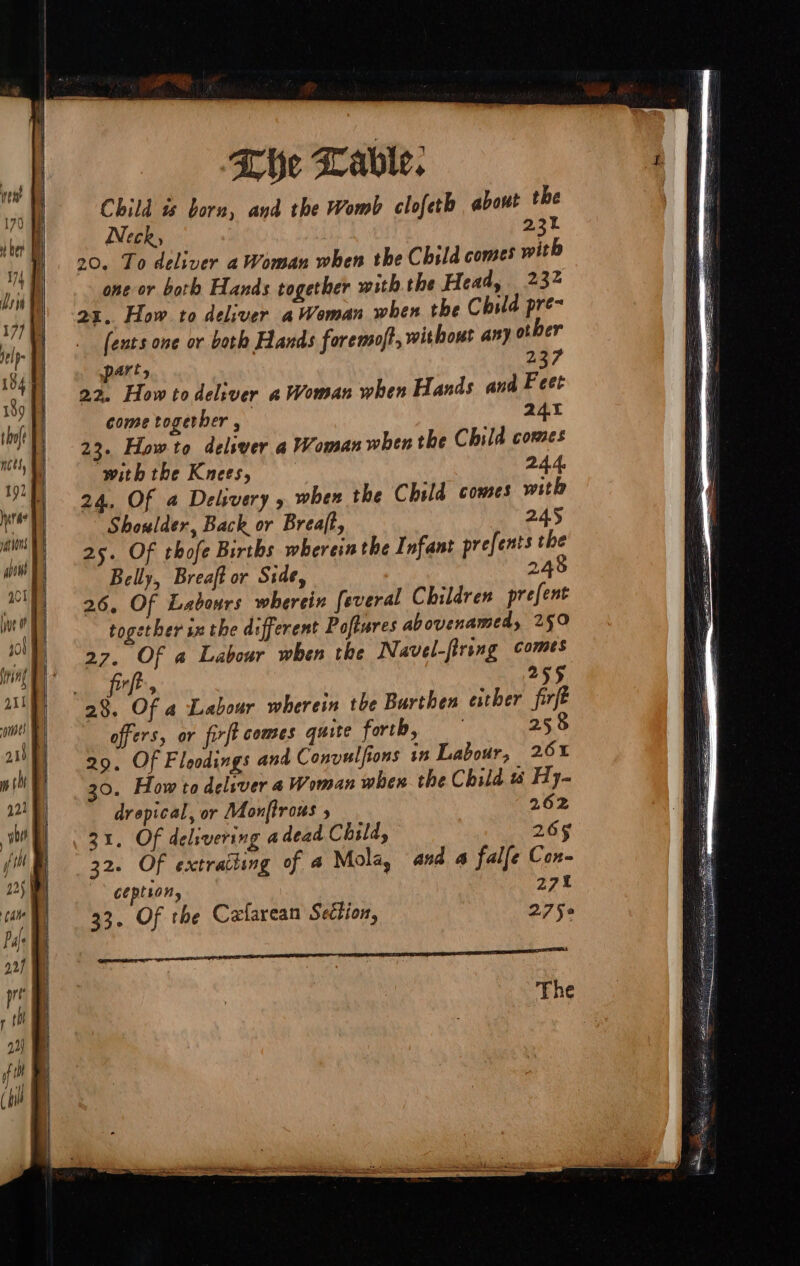 The Table.
Child is born, and the Womb closeth about the
Neck, 231
20. To deliver a Woman when the Child comes with
one or both Hands together with the Head, 232
21. How to deliver a Woman when the Child pre-
sents one or both Hands foremost, without any other
part, 237
22. How to deliver a Woman when Hands and Feet
come together, 241
23. How to deliver a Woman when the Child comes
with the Knees, 244
24. Of a Delivery, when the Child comes with
Shoulder, Back or Breast, 245
25. Of those Births wherein the Infant presents the
Belly, Breast or Side, 248
26. Of Labours wherein several Children present
together in the different Postures abovenamed, 250
27. Of a Labour when the Navel-string comes
first, 255
28. Of a Labour wherein the Burthen either first
offers, or first comes quite forth, 258
29. Of Floodings and Convulsions in Labour, 261
30. How to deliver a Woman when the Child is Hy-
dropical, or Monstrous, 262
31. Of delivering a dead Child, 265
32. Of extracting of a Mola, and a false Con-
ception, 271
33. Of the Cæsarean Section, 275.
The
170
174
177
help-
184
189
those
192
201
211
225
227